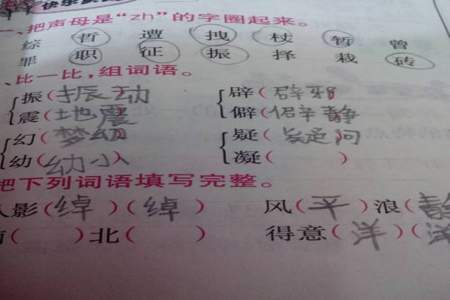 一、把声母是“zh”的字圈起来。
综 哲 遭 拽 杖 暂 曾
罪 职 征 振 择 栽 砖
、比一比,组词语。
振(振动) 辟(辟邪)
震(地震) 僻(僻静)
幻(梦幻) 疑(疑问)
幼(幼小) 凝( )
把下列词语填写完整。
人影(绰)(绰) 风(平)浪(静
( )北( ) 得意(洋)(洋